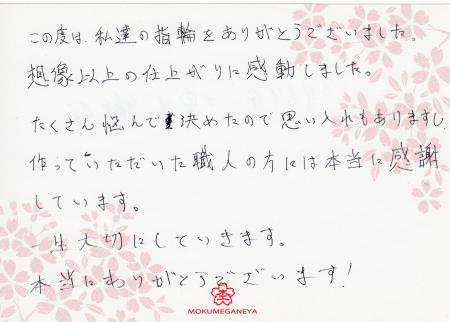 この度は、私達の指輪をありがとうございました。
想像以上の仕上がりに感動しました。
たくさん悩んで決めたので思い入れもありますし、
作っていただいた職人の方には本当に感謝
しています。
一生大切にしていきます。
本当にありがとうございます!
MOKUMEGANEYA